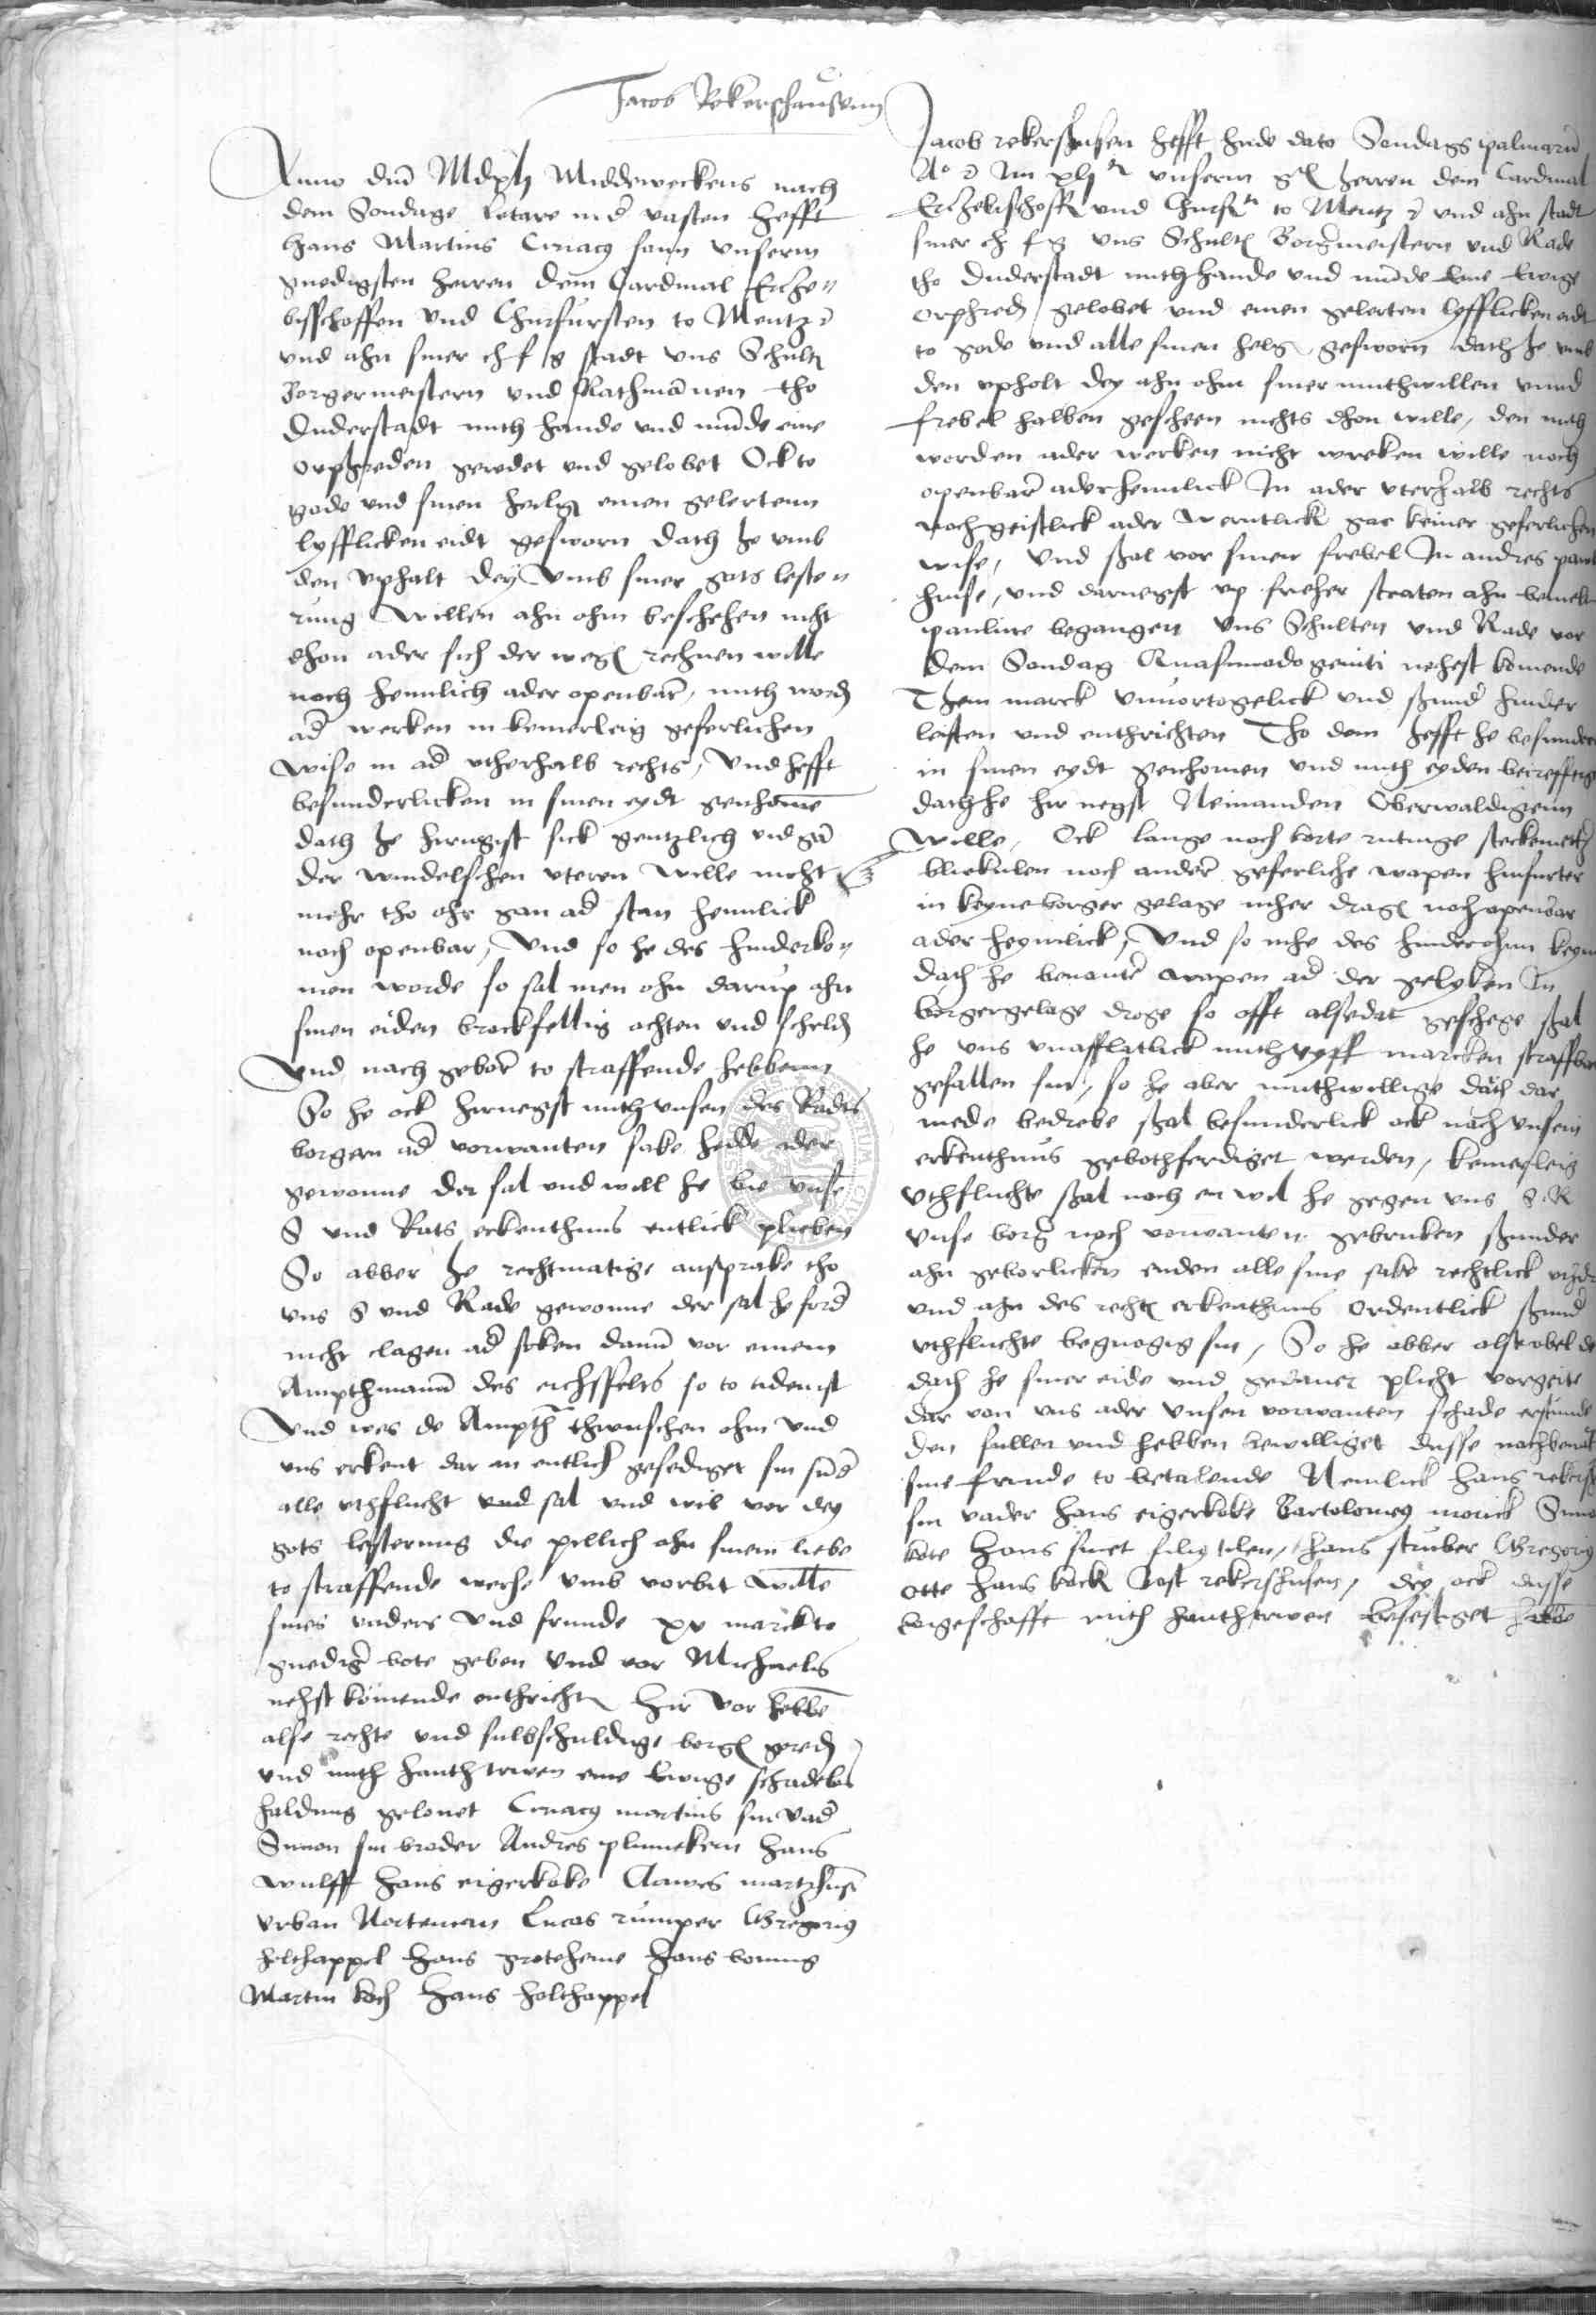 Jacob Rekerschausenn
Anno dm̄ Mdxlj Middeweckens nach
dem Sondage Letare in d̄ vasten hefft
Hans Martins Ciriacy sann vnserm
gnedigsten herren dem Cardinal Erche„
bisschoffen vnd Churfursten to Mentz
vnd ahn siner ch f g stadt vns Schult
Borgermeistern vnd Rathmānen tho
Duderstadt mith hande vnd mūde eine
orpheden gewdet vnd gelobet Ock to
gode vnd sinen heilg einen gelertenn
lyfflicken eidt gesworn dath he vmb
den vphalt dey vmb siner gots leste„
rung willen ahn ohm beschehen nicht
dhon ader sich der weg rechnen wille
noch hemlich ader openbar, mith word
ad werken in keinerleig geferlichen
wise in ad vtherhalb rechts, vnd hefft
besunderlicken in sinen eydt genhome
dath he hirnegst sick gentzlich vnd gā
der windelschen vteren wille nicht
mehr tho ohr gan ad stan hemlick
noch openbar, Vnd so he des hinderko„
men worde so sal men ohn darup ahn
sinen eiden brockfellig achten vnd scheld
Vnd nach gebor to straffende hebbenn
So he ock hirnegst mith vnsen des Rades
borgern ad vorwanten sake hedde ader
gewonne der sal vnd will he bie vnse
S vnd Rats erkenthnus entlick plieben
So abber he rechtmatige ansprake tho
vns S vnd Rade gewonne der sal he ford
nicht clagen ad soken dann vor einem
Ampthmann des eichsffelts so to tidenist
Vnd wes de Ampth thwuschen ohm vnd
vns erkent dar an entlich gesediget sin sūd
alle vthflucht vnd sal vnd wil vor dey
gots lesterung die pillich ahn sinem liebe
to straffende weche vmb vorbit wille
sines vaders vnd frunde xv marckte
gnediger bote geben vnd vor Michaelis
nehst komende enthricht Hir vor hebbe
alse rechte vnd sulbschuldige borg gered
vnd mith hanth trwen eine Ewige schadelos
haldung gelouet Ciriacy martins sin vad
Simon sin broder Andres plumekern Hans
wulff Hans eigerkoke Clawes martzhuse
vrban Norteman Lucas rumper Gregoriy
holthappel Hans groteheine Hans boning
Martin Koch Hans holthappel
Jacob rekershusen hefft hude dato Sondags palmarū
Ao vnserm g herren dem Cardinal
Ertzebischoff vnd Churf to Mentz vnd ahn stadt
siner ch f g vns Schult Borgermeistern vnd Rade
tho Duderstadt mith hande vnd mūde eine Ewige
orphed gelobet vnd einen gelerten lyfflicken eidt
to gode vnd alle sinen helg gesworn dath he vmb
den vpholt dey ahn ohm siner muthwillen vnnd
frebel halben gescheen nichts dhon wille, den mith
worden ader werken nicht wreken wille noch
openbar ader hemlick In ader vterhalb rechts
noch geistlick ader werntlick gar keiner geferlichen
wise, Vnd shal vor sinen frebel In andres
huse, vnd darnegst vp frieher straten ahn
pauline begangen vns Schulten vnd Rade vor
dem Sondag Quasimodogeniti nehest komende
Thein marck vnuortogelick vnd shund hinder
leisten vnd enthrichten Tho dem hefft he besunder
in sinen eydt genhomen vnd mith eyden
dath he hir negst Neimanden Oberwaldigenn
wille, Ock lange noch korte
bliekulen noch ander geferliche wapen hinfurter
in keyne borger gelage mher drag noch openbar
ader heymlick, Vnd so mhe des hinder ohm
dath he benante wapen ad der gelyken In
borgergelage droge so offt alse dat geschege shal
he vns vnafflatlick mith vyff marcken
gefallen sin, so he aber muthwillige dath dar
mede bedrebe shal besunderlick ock nach vnsem
erkenthnus gebothferdiget werden, keinerleig
vthfluchte shal noch en wil he gegen vns S. R
vnse borg noch vorwanten gebruken shunder
ahn geborlicken enden alle sine sake rechtlick
vnd ahn des recht erkenthnus Ordentlick shund
vthfluchte begnogig sin, So he abber
dath he siner eide vnd gedaner plicht vorgeite
dar van vns ader vnsen vorwanten schade erstunde
den sullen vnd hebben bewilliget dusse
sine frunde to betalende Nemlick Hans
sin vader Hans eigerkoke Bartolomey morick
Hans smet filiy tilen, Hans struber Gregoriy
otte Hans kock Jost rekershusen, dey ock dusse
borgeschafft mith hanthtrwen befestiget